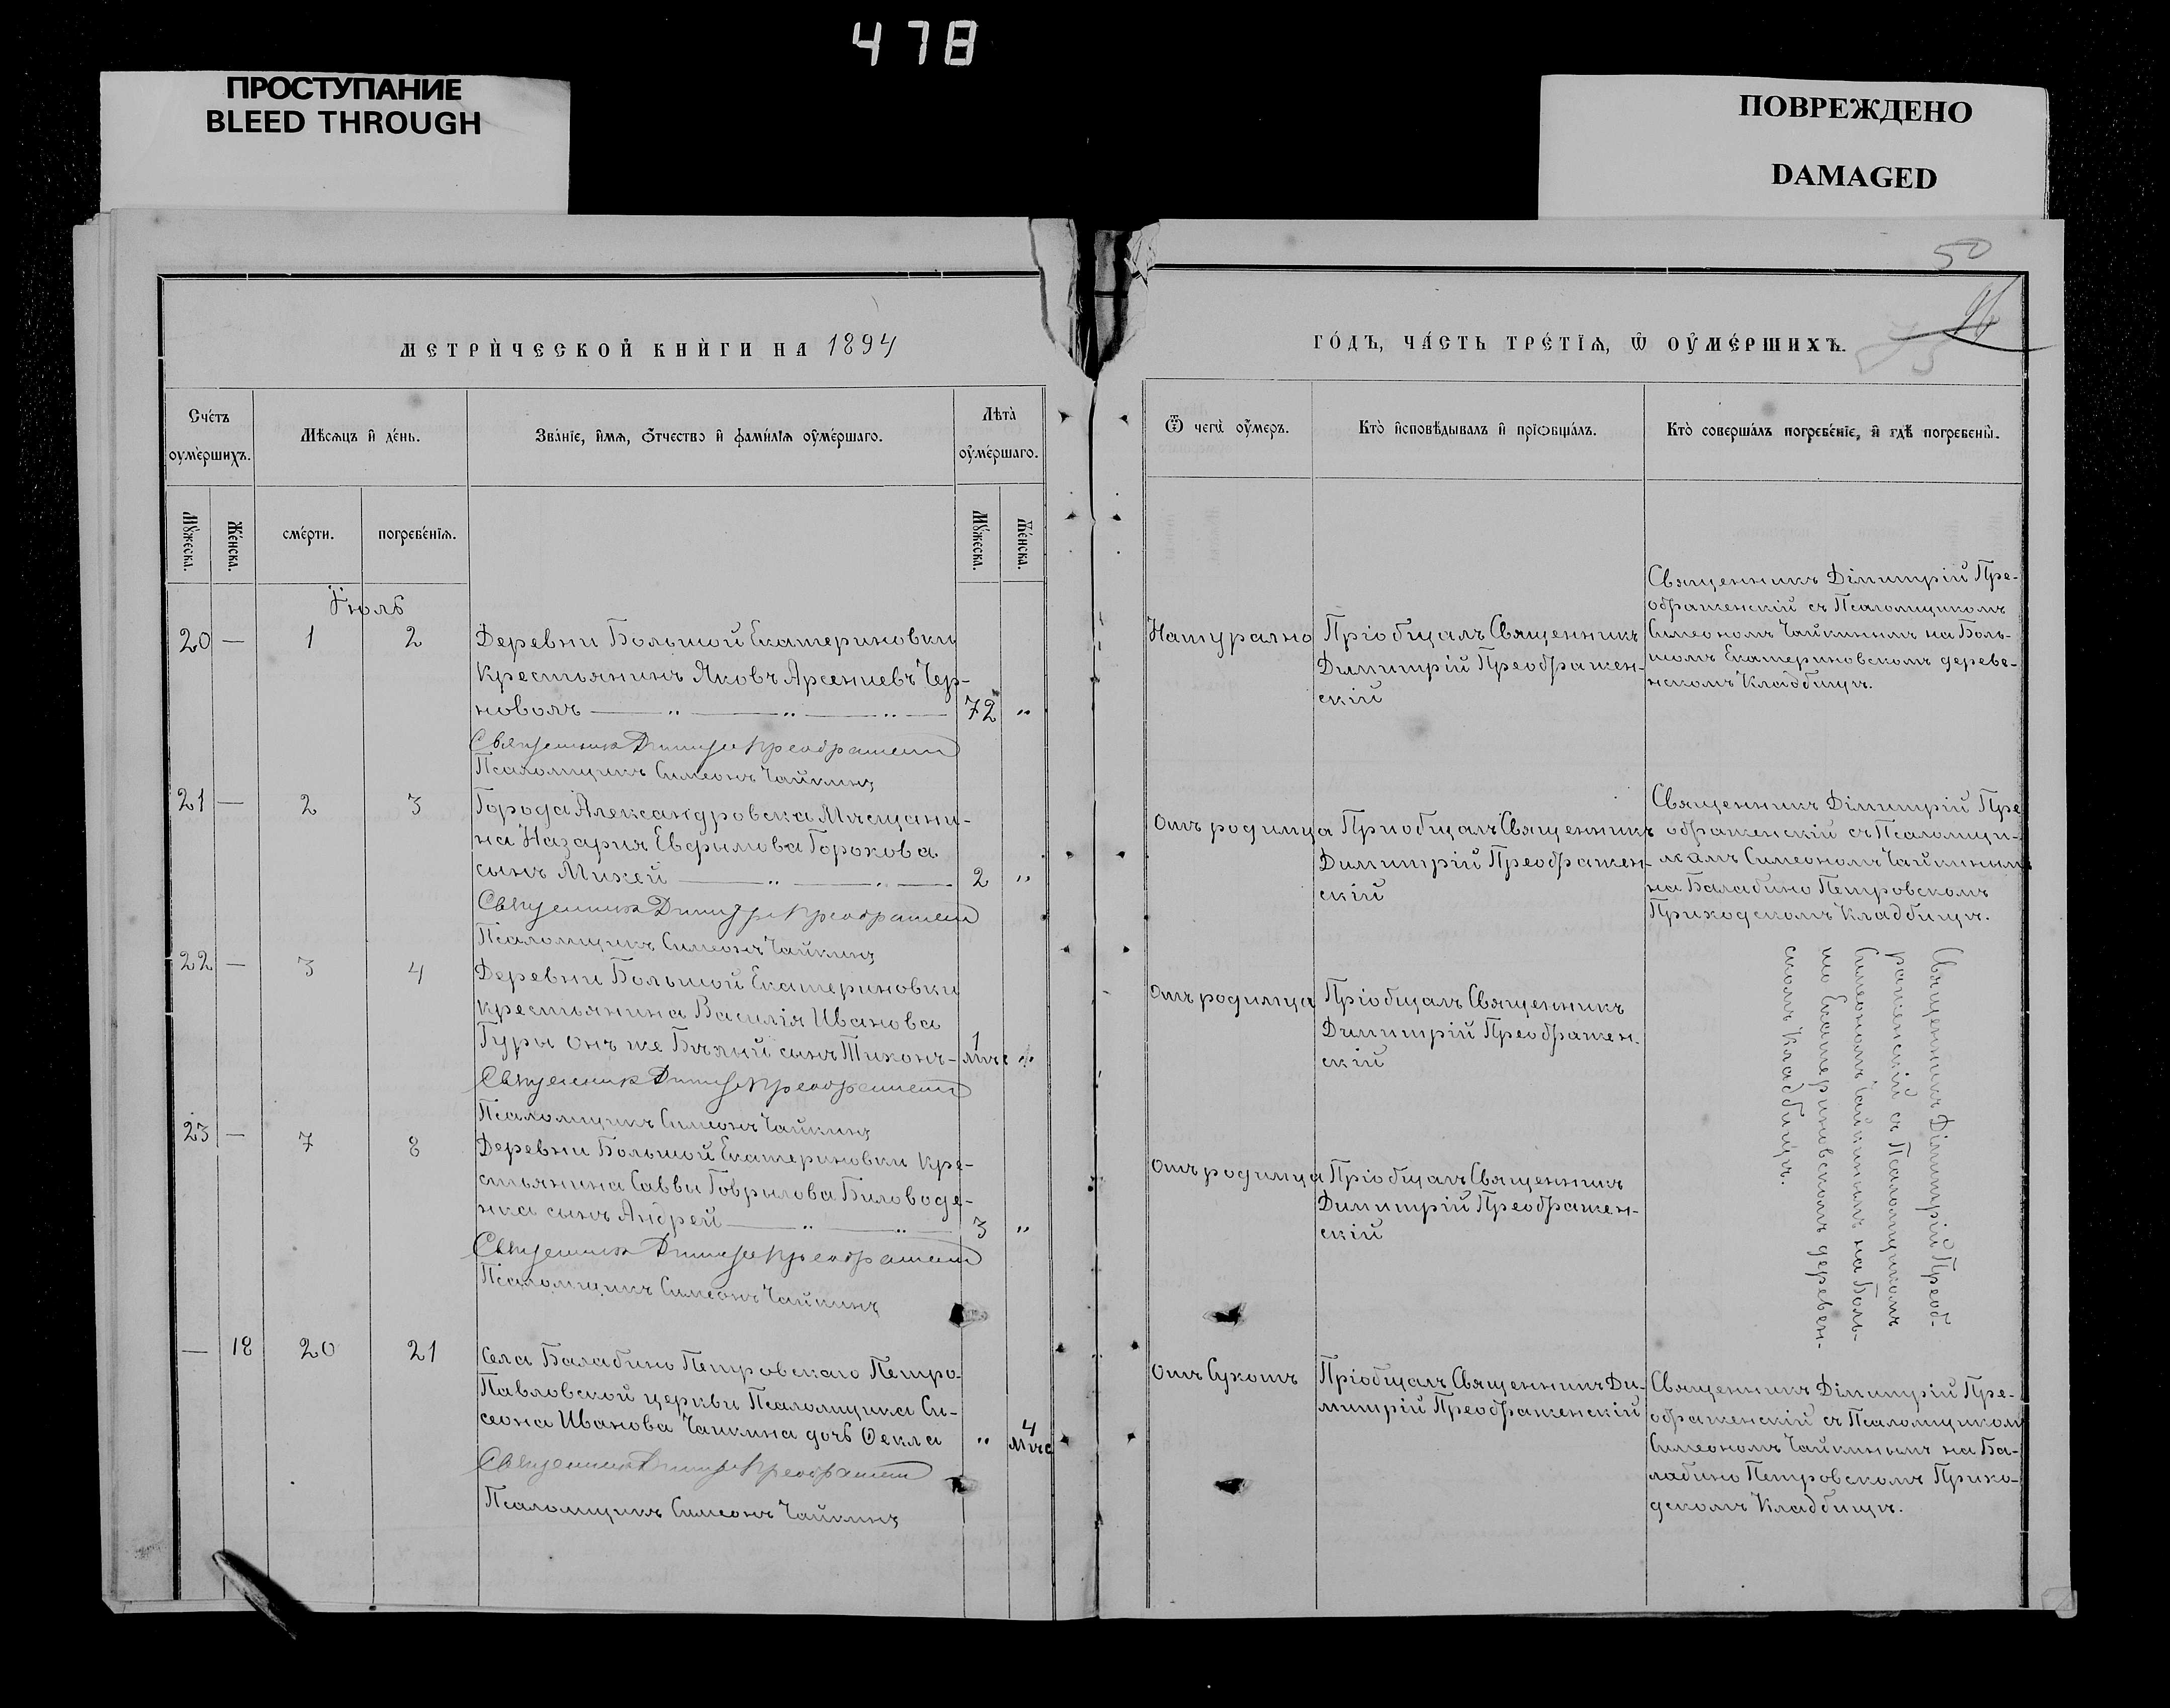 478
ПРОСТУПАНИЕ
BLEED THROUGH
ПОВРЕЖДЕНО
DAMAGED
50
МЕТРИ́ЧЕСКОЙ КНИ́ГИ НА 1894
ГО́ДЪ, ЧА́СТЬ ТРЕ́ТІѦ, Ѿ ОУ҆МЕ́РШИХЪ.
Счетъ оумершихъ.
Мѣсяцъ и день.
Званіе, имя, отчество и фамилія оумершаго.
Лѣта оумершаго.
Ѿ чегѡ оумеръ.
Кто исповѣдывалъ и пріобщалъ.
Кто совершалъ погребеніе, и гдѣ погребены.
Мужеска.
Женска.
смерти.
погребенія.
Мужеска.
Женска.
Іюль
20 — 1 2
Деревни Большой Екатериновки
крестьянинъ Яковъ Арсеніевъ Чер-
новолъ — „ — „ — „ — 72 „
Священникъ Димитрій Преображенскій
Псаломщикъ Симеонъ Чайкинъ
Натурально
Пріобщалъ Священникъ
Димитрій Преображен-
скій
Священникъ Дімитрій Пре-
ображенскій съ Псаломщикомъ
Симеономъ Чайкинымъ на Боль-
шомъ Екатериновскомъ дереве-
нскомъ Кладбищѣ.
21 — 2 3
Города Александровска Мѣщани-
на Назарія Евфимова Горохова
сынъ Михей — „ — „ — 2 „
Священникъ Димитрій Преображенскій
Псаломщикъ Симеонъ Чайкинъ
Отъ родимца
Приобщалъ Священникъ
Димитрій Преображен-
скій
Священникъ Дімитрій Пре
ображенскій съ Псаломщи-
комъ Симеономъ Чайкинымъ
на Балабино Петровскомъ
Приходскомъ Кладбищѣ.
22 — 3 4
Деревни Большой Екатериновки
крестьянина Василія Иванова
Гуры онъ же Бѣлый сынъ Тихонъ — 1 мѣс „
Священникъ Димитрій Преображенскій
Псаломщикъ Симеонъ Чайкинъ
Отъ родимца
Пріобщалъ Священникъ
Димитрій Преображен-
скій
Священникъ Дімитрій Преоб-
раженскій съ Псаломщикомъ
Симеономъ Чайкинымъ на Боль-
шо Екатериновскомъ деревен-
скомъ Кладбищѣ.
23 — 7 8
Деревни Большой Екатериновки кре-
стьянина Саввы Говрилова Биловоде-
нка сынъ Андрей — „ — „ — 3 „
Священникъ Димитрій Преображенскій
Псаломщикъ Симеонъ Чайкинъ
Отъ родимца
Пріобщалъ Священникъ
Димитрій Преображен-
скій
— 18 20 21
Села Балабино Петровскаго Петро-
Павловской церкви Псаломщика Си-
сеона Иванова Чайкина дочь Ѳекла „ 4 мѣс
Священникъ Димитрій Преображенскій
Псаломщикъ Симеонъ Чайкинъ
Отъ Сухотъ
Пріобщалъ Священникъ Ди-
митрій Преображенскій
Священникъ Дімитрій Пре-
ображенскій съ Псаломщиком
Симеономъ Чайкинымъ на Ба-
лабино Петровскомъ Прихо-
дскомъ Кладбищѣ.